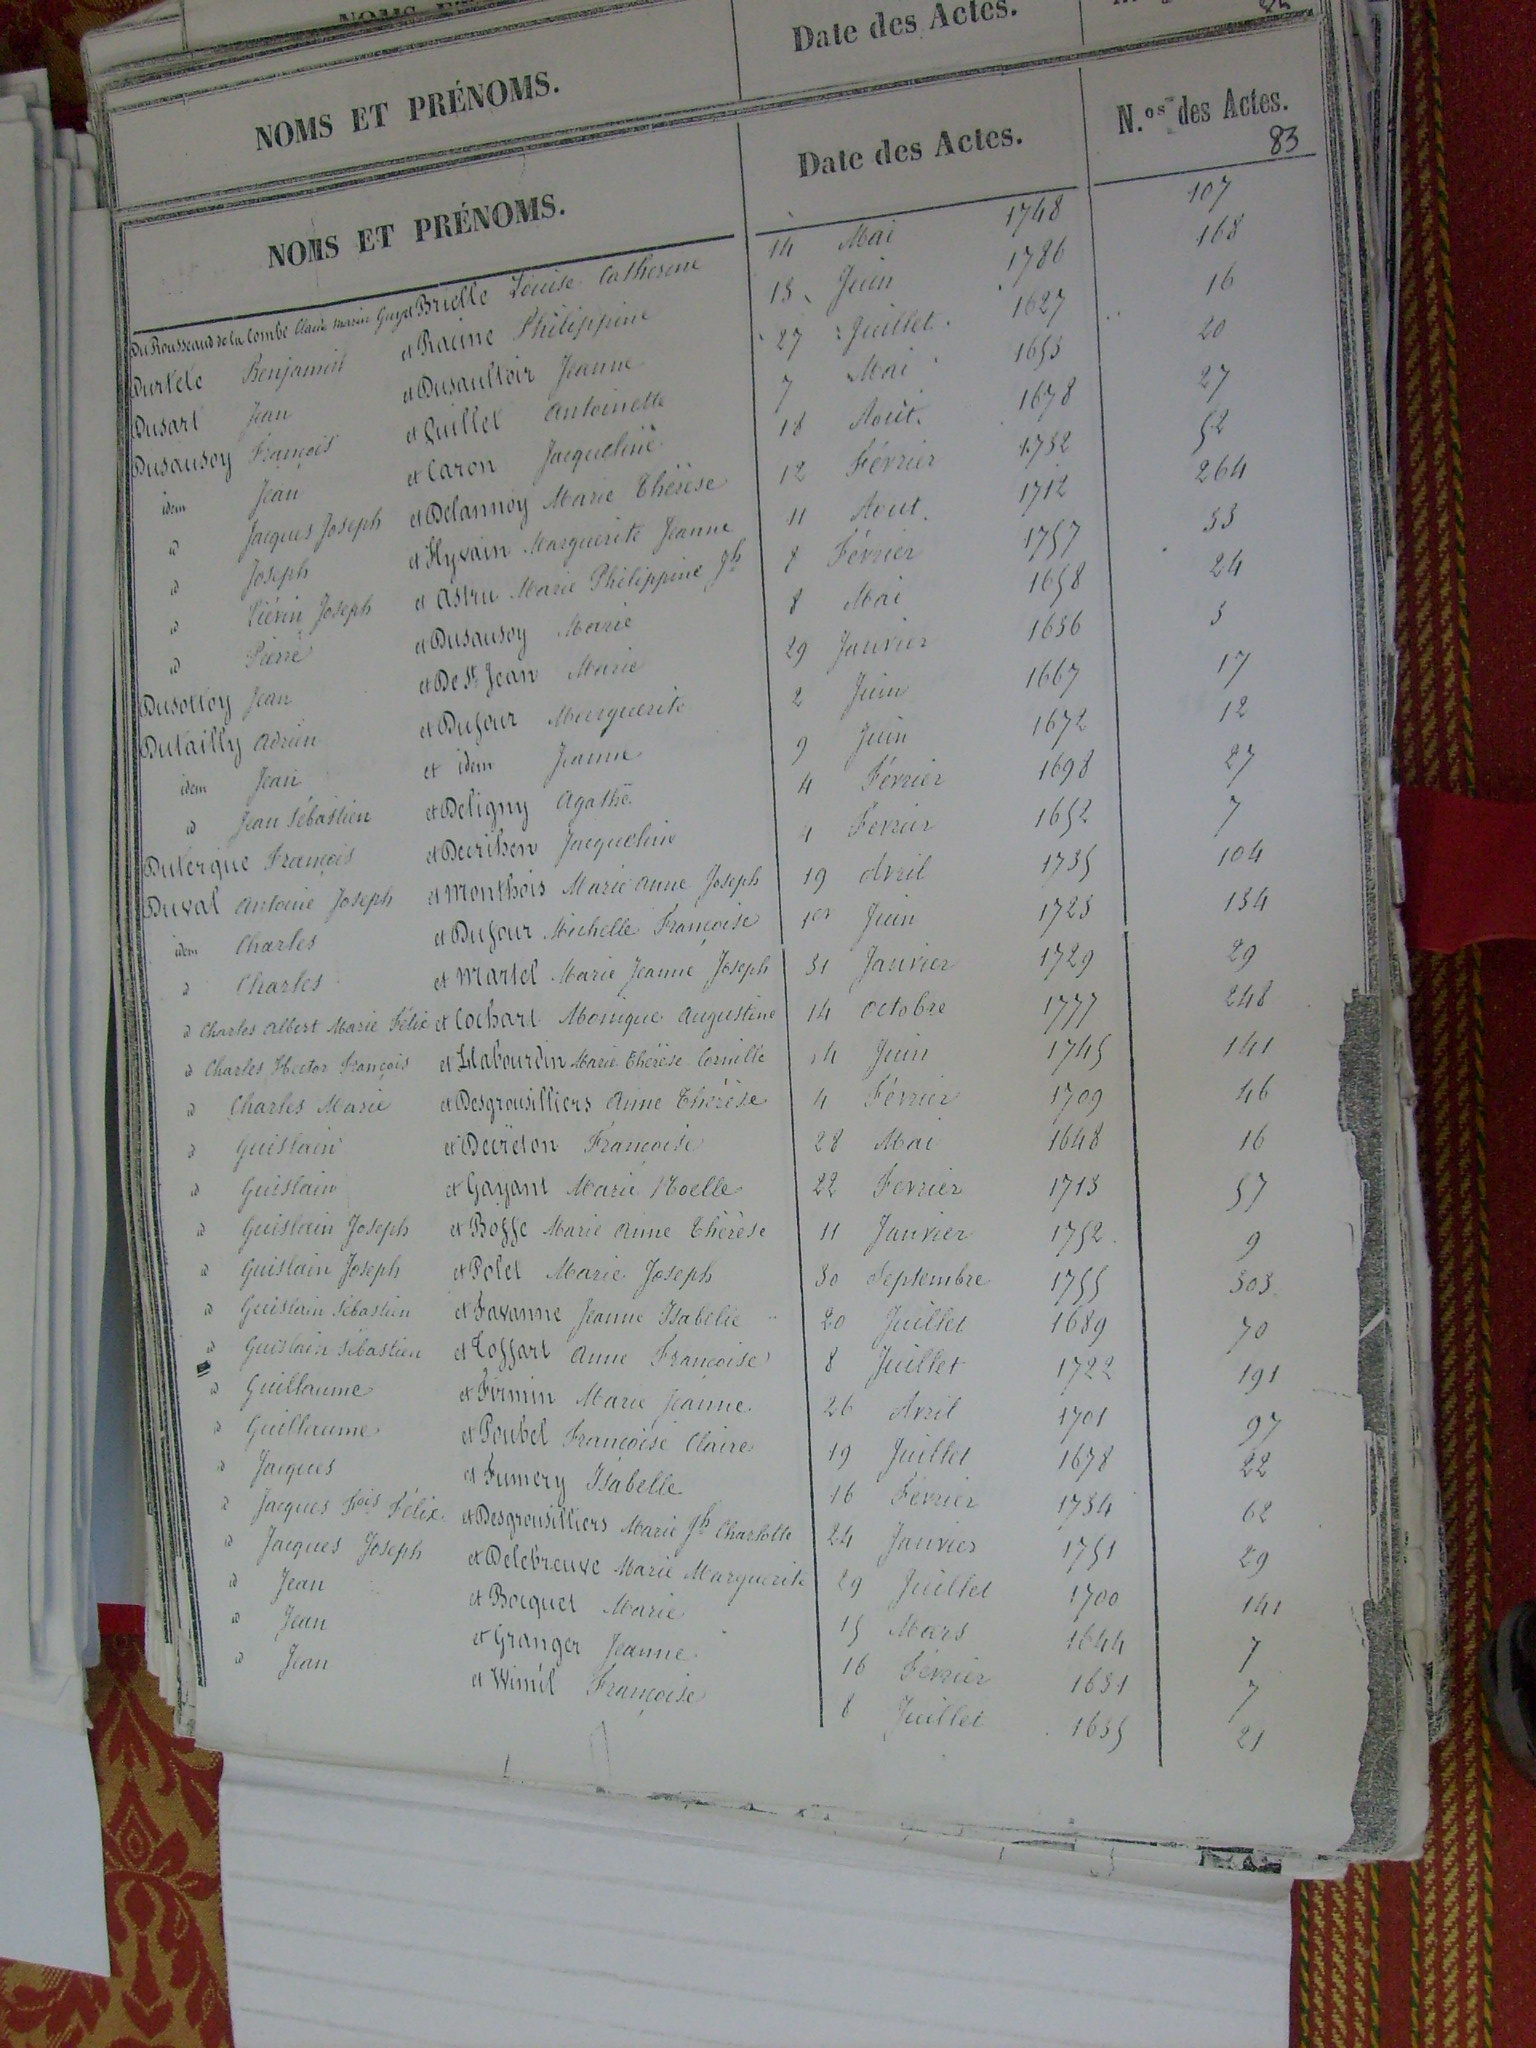 NOMS ET PRÉNOMS. Date des Actes.
NOMS ET PRÉNOMS. Date des Actes. N.os des Actes.
83
Du Rousseaud de la Combe Claude Marin Guy et Brielle Louise Catherine 14 Mai 1748 107
Durlele Benjamin et Racine Philippine 13 Juin 1786 168
Dusart Jean et Dusaultoir Jeanne 27 Juillet 1627 16
Dusausoy François et Guillet Antoinette 7 Mai 1653 20
idem Jean et Caron Jacqueline 18 Août 1678 27
id Jacques Joseph et Delannoy Marie Thérèse 12 Février 1732 52
id Joseph et Hyvain Marguerite Jeanne 11 Aout 1712 264
id Liévin Joseph et Astru Marie Philippine Jh 8 Février 1757 33
id Pierre et Dusausoy Marie 8 Mai 1658 24
Dusolloy Jean et De St Jean Marie 29 Janvier 1636 3
Dutailly Adrien et Dufour Marguerite 2 Juin 1667 17
idem Jean et idem Jeanne 9 Juin 1672 12
id Jean Sébastien et Deligny Agathe 4 Février 1698 27
Dutergue François et Decrihen Jacqueline 4 Février 1652 7
Duval Antoine Joseph et Monthois Marie Anne Joseph 19 Avril 1735 104
idem Charles et Dufour Michelle Françoise 1er Juin 1723 134
id Charles et Martel Marie Jeanne Joseph 31 Janvier 1729 29
id Charles Albert Marie Félix et Cochart Monique Augustine 14 Octobre 1777 248
id Charles Hector François et Llabourdin Marie Thérèse Cornille 4 Juin 1745 141
id Charles Marie et Desgrousilliers Anne Thérèse 4 Février 1709 46
id Guislain et Decreton Françoise 28 Mai 1648 16
id Guislain et Gayant Marie Noelle 22 Fevrier 1713 57
id Guislain Joseph et Bosse Marie Anne Thérèse 11 Janvier 1752 9
id Guislain Joseph et Polet Marie Joseph 30 Septembre 1755 303
id Guislain Sébastien et Favanne Jeanne Isabelle 20 Juillet 1689 70
id Guislain Sébastien et Toffart Anne Françoise 8 Juillet 1722 191
id Guillaume et Firmin Marie Jeanne 26 Avril 1701 97
id Guillaume et Poubel Françoise Claire 19 Juillet 1678 22
id Jacques et Fumery Isabelle 16 Février 1734 62
id Jacques Fois Félix et Desgrousilliers Marie Jh Charlotte 24 Janvier 1751 29
id Jacques Joseph et Delebreuve Marie Marguerite 29 Juillet 1700 141
id Jean et Bocquet Marie 15 Mars 1644 7
id Jean et Granger Jeanne 16 Février 1631 7
id Jean et Wimil Françoise 8 Juillet 1635 21